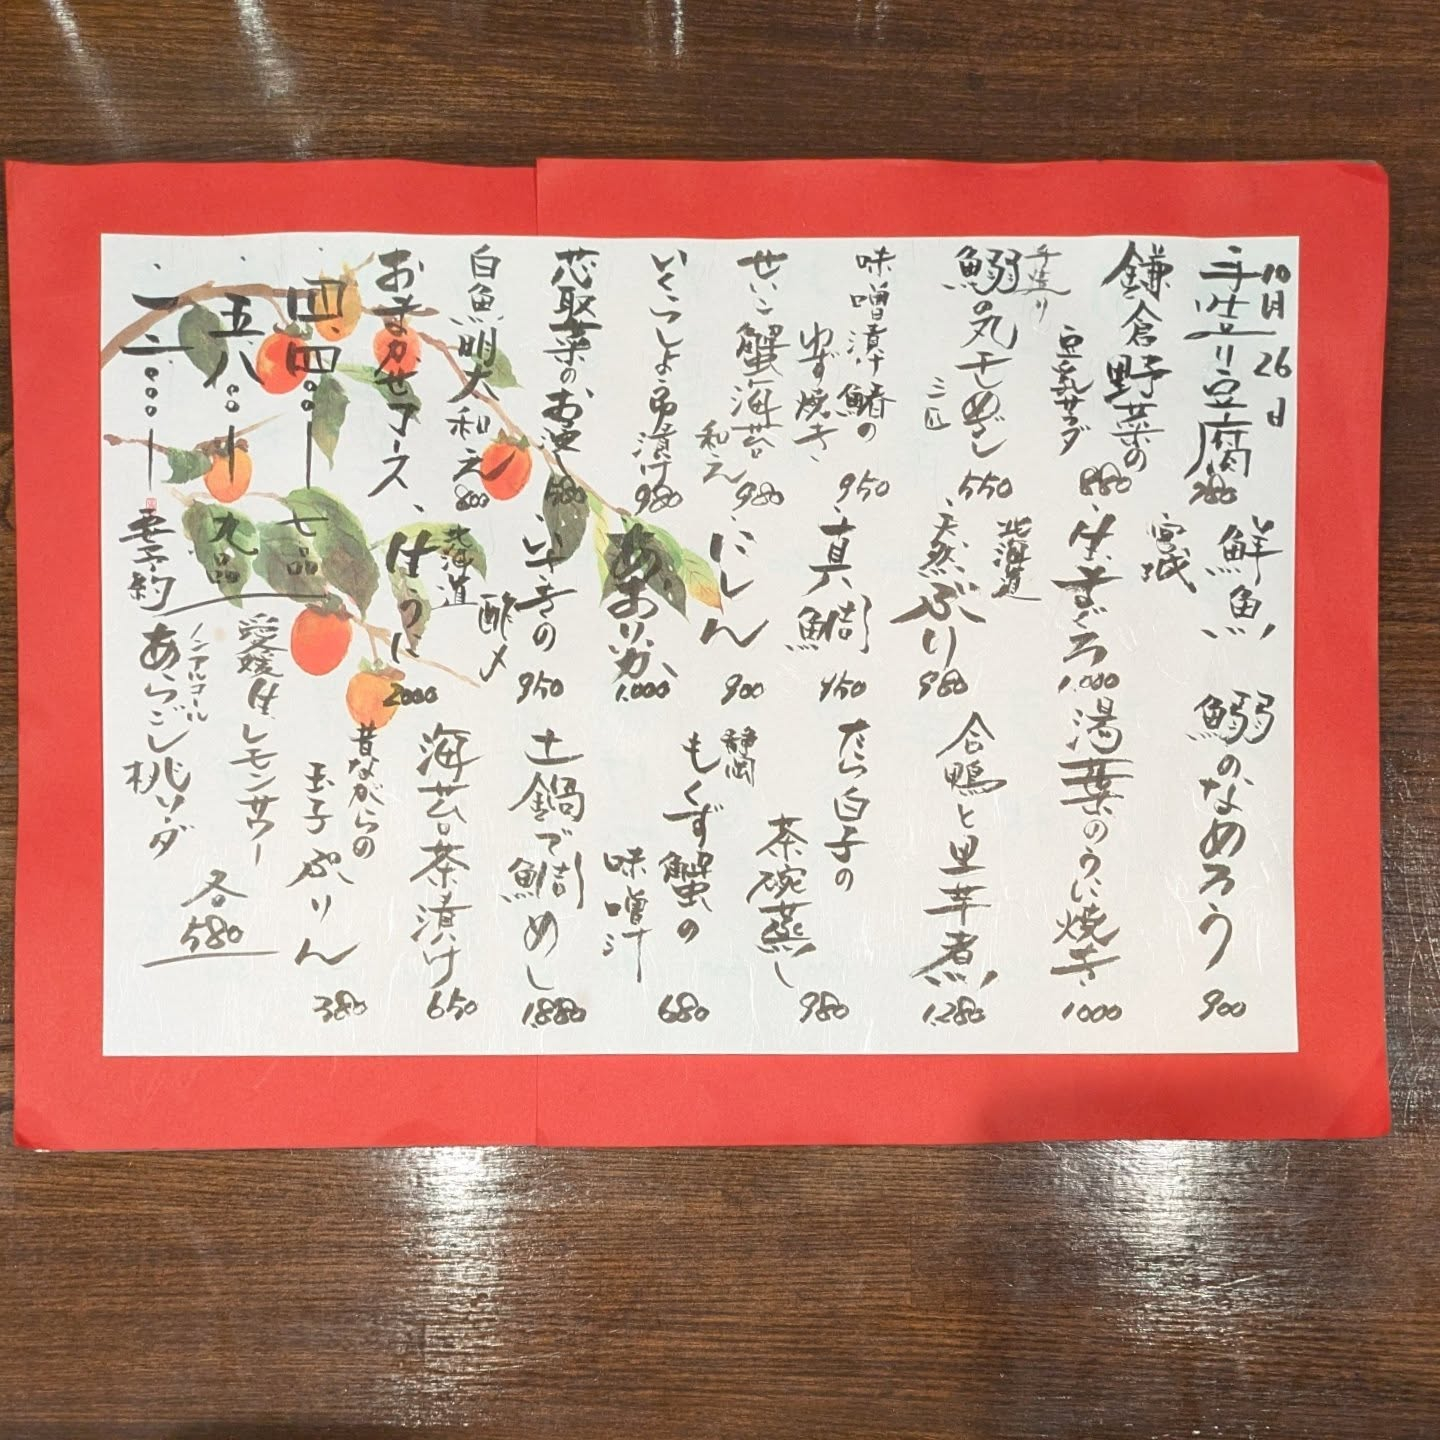 10月26日
手造り豆腐 780
鎌倉野菜の
豆乳サラダ 880
手造り
鰯の丸干しめざし
三匹 550
味噌漬け鰆の
ゆず焼き 950
せいこ蟹海苔
和え 980
いくらしょう油漬け 980
芯取菜のお浸し 580
白魚明太和え 800
おまかせコース
四、四〇〇ー 七品
五、八〇〇ー 九品
一二、〇〇〇ー 要予約
鮮魚
宮城
、生まぐろ 1,000
北海道
、天然ぶり 980
、真鯛 950
、にしん 900
、あおりいか 1,000
、いさきの
酢〆 950
北海道
、生うに 2000
愛媛生レモンサワー
ノンアルコール
あらごし桃ソーダ
各580
鰯のなめろう 900
湯葉のうに焼き 1000
合鴨と里芋煮 1,280
たら白子の
茶碗蒸し 980
静岡
もくず蟹の
味噌汁 680
土鍋で鯛めし 1,880
海苔茶漬け 650
昔ながらの
玉子ぷりん 380